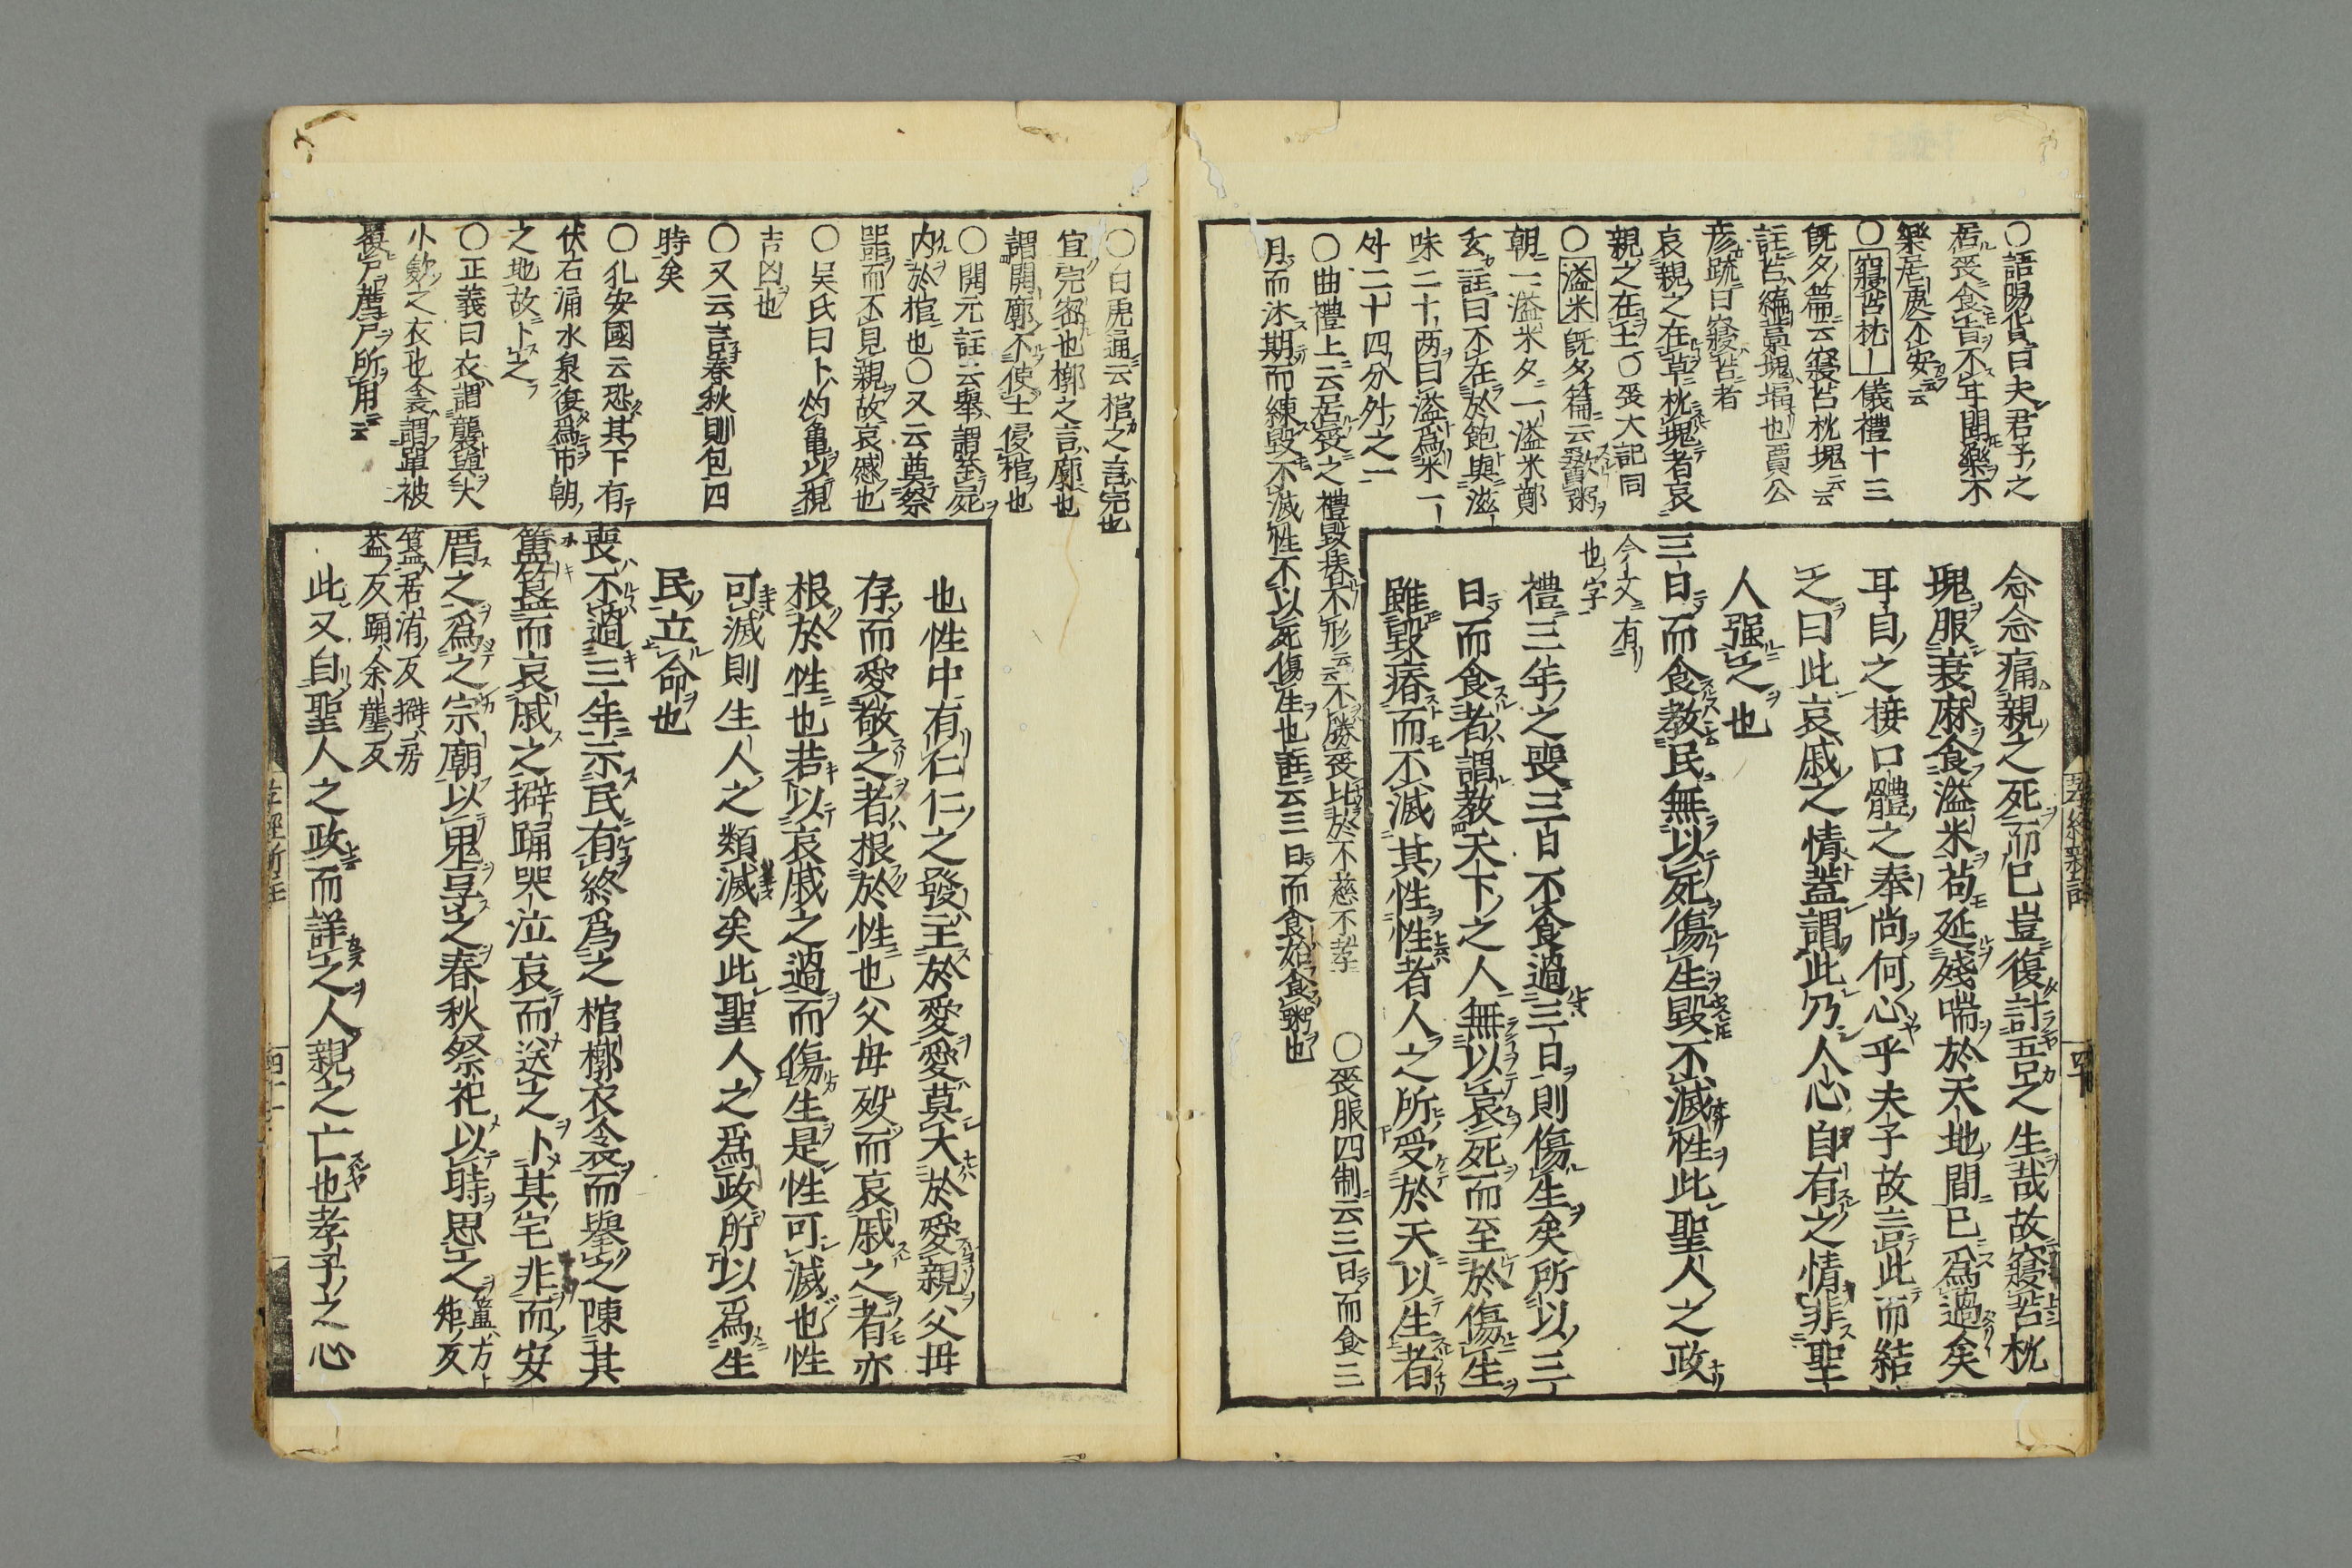 〇語陽貨曰夫君子之
居喪食旨不甘聞樂不
樂居處不安云云
〇寢苫枕|儀禮十三
既夕篇云寢苫枕塊云云
註苫編藁塊堛也賈公
彦疏曰寢苫者
哀親之在草枕塊者哀
親之在土〇喪大記同
〇溢米既夕篇云歠粥
朝一溢米夕一溢米鄭
玄註曰不在於飽與滋|
味二十两曰溢爲米一|
升二十四分升之一
〇曲禮上云居喪之禮毀瘠不形云云不勝喪比於不慈不孝 〇喪服四制云三日而食三
月而沐期而練毀不滅性不以死傷生也註云三日而食始食粥也
念念痛親之死而已豈復計吾之生哉故寢苫枕
塊服衰麻食溢米苟延殘喘於天地間已爲過矣
耳目之接口體之奉尚何心乎夫子故言此而結
之曰此哀戚之情蓋謂此乃人心自有之情非聖
人强之也
三日而食教民無以死傷生毀不滅性此聖人之政
今文有
也字
禮三年之喪三日不食過三日則傷生矣所以三
日而食者謂教天下之人無以哀死而至於傷生
雖毀瘠而不滅其性性者人之所受於天以生者
孝經新註
四十
〇白虎通云棺之言完也
宜完密也槨之言廓也
謂開廓不使土侵棺也
〇開元註云舉謂至屍
内於棺也〇又云奠祭
器而不見親故哀慼也
〇吴氏曰卜灼亀以視
吉凶也
〇又云言春秋則包四
時矣
〇孔安國云恐其下有
伏石涌水泉復爲市朝
之地故卜之
〇正義曰衣謂襲與大
小歛之衣也衾謂單被
覆尸薦尸所用云云
也性中有仁仁之發主於愛愛莫大於愛親父母
存而愛敬之者根於性也父母歿而哀戚之者亦
根於性也若以哀戚之過而傷生是性可滅也性
可滅則生人之類滅矣此聖人之爲政所以爲生
民立命也
喪不過三年示民有終爲之棺槨衣衾而舉之陳其
簠簋而哀戚之擗踊哭泣哀而送之卜其宅兆而安
厝之爲之宗廟以鬼享之春秋祭祀以時思之簠方
矩反
簋居洧反擗房
益反踊余壟反
此又自聖人之政而詳之人親之亡也孝子之心
孝經新註
四十一